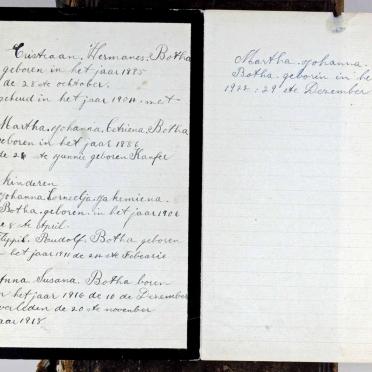 Cristiaan. Hermanes. Botha
geboren in het jaar 1885
de 28 ste ocktober.
gehuud in het jaar 1904 met
Martha. Johanna. Botha
geboren in het jaar 1886
de 24 ste Junnie geboren
kinderen
Johanna Cornelja
Botha. geboren. in het jaar 1906
de 8 ste April.
Roudolf. Botha geboren
in het jaar 1911 de 24 ste Febearie
Anna Susana. Botha boren
in het jaar 1916 de 10 de Dezember
overleden de 20 ste november
jaar 1918.
Martha. Johanna.
Botha. geborin in he
1922: 29 ste Dezember